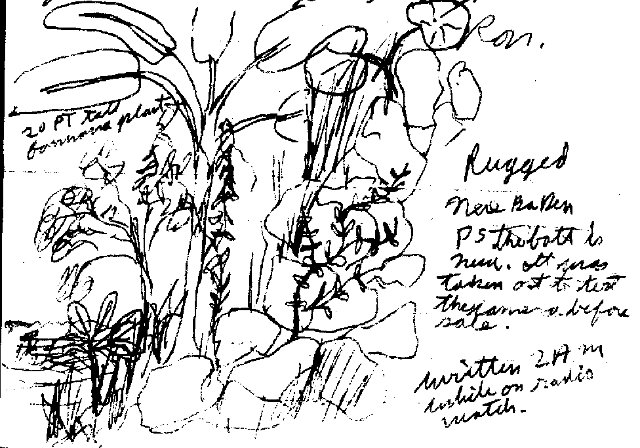 Ron.
20 FT tall
bannana plant
Rugged
PS the boat is
new. It was
taken out to test
the same before
sale.
written 2 A M
while on radio
watch.